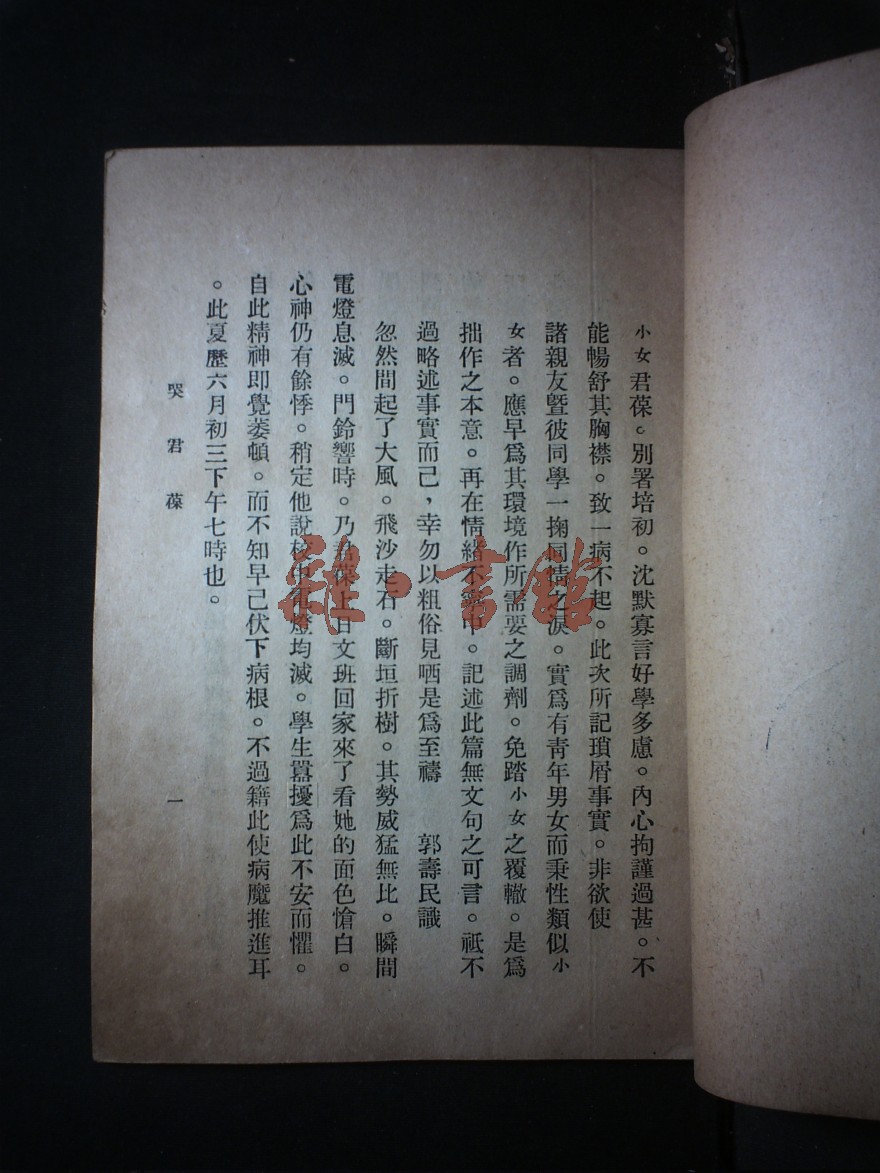 小女君葆。別署培初。沈默寡言好學多慮。內心拘謹過甚。不
能暢舒其胸襟。致一病不起。此次所記瑣屑事實。非欲使
諸親友暨彼同學一掬同情之淚。實爲有靑年男女而秉性類似小
女者。應早爲其環境作所需要之調劑。免踏小女之覆轍。是爲
拙作之本意。再在情緒不寧中。記述此篇無文句之可言。祇不
過略述事實而已，幸勿以粗俗見哂是爲至禱　郭壽民識
忽然間起了大風。飛沙走石。斷垣折樹。其勢威猛無比。瞬間
電燈息滅。門鈴響時。乃君葆上日文班回家來了看她的面色愴白。
心神仍有餘悸。稍定他說校中電燈均滅。學生囂擾爲此不安而懼。
自此精神即覺萎頓。而不知早已伏下病根。不過籍此使病魔推進耳
。此夏歷六月初三下午七時也。
哭君葆
一
雜·書館